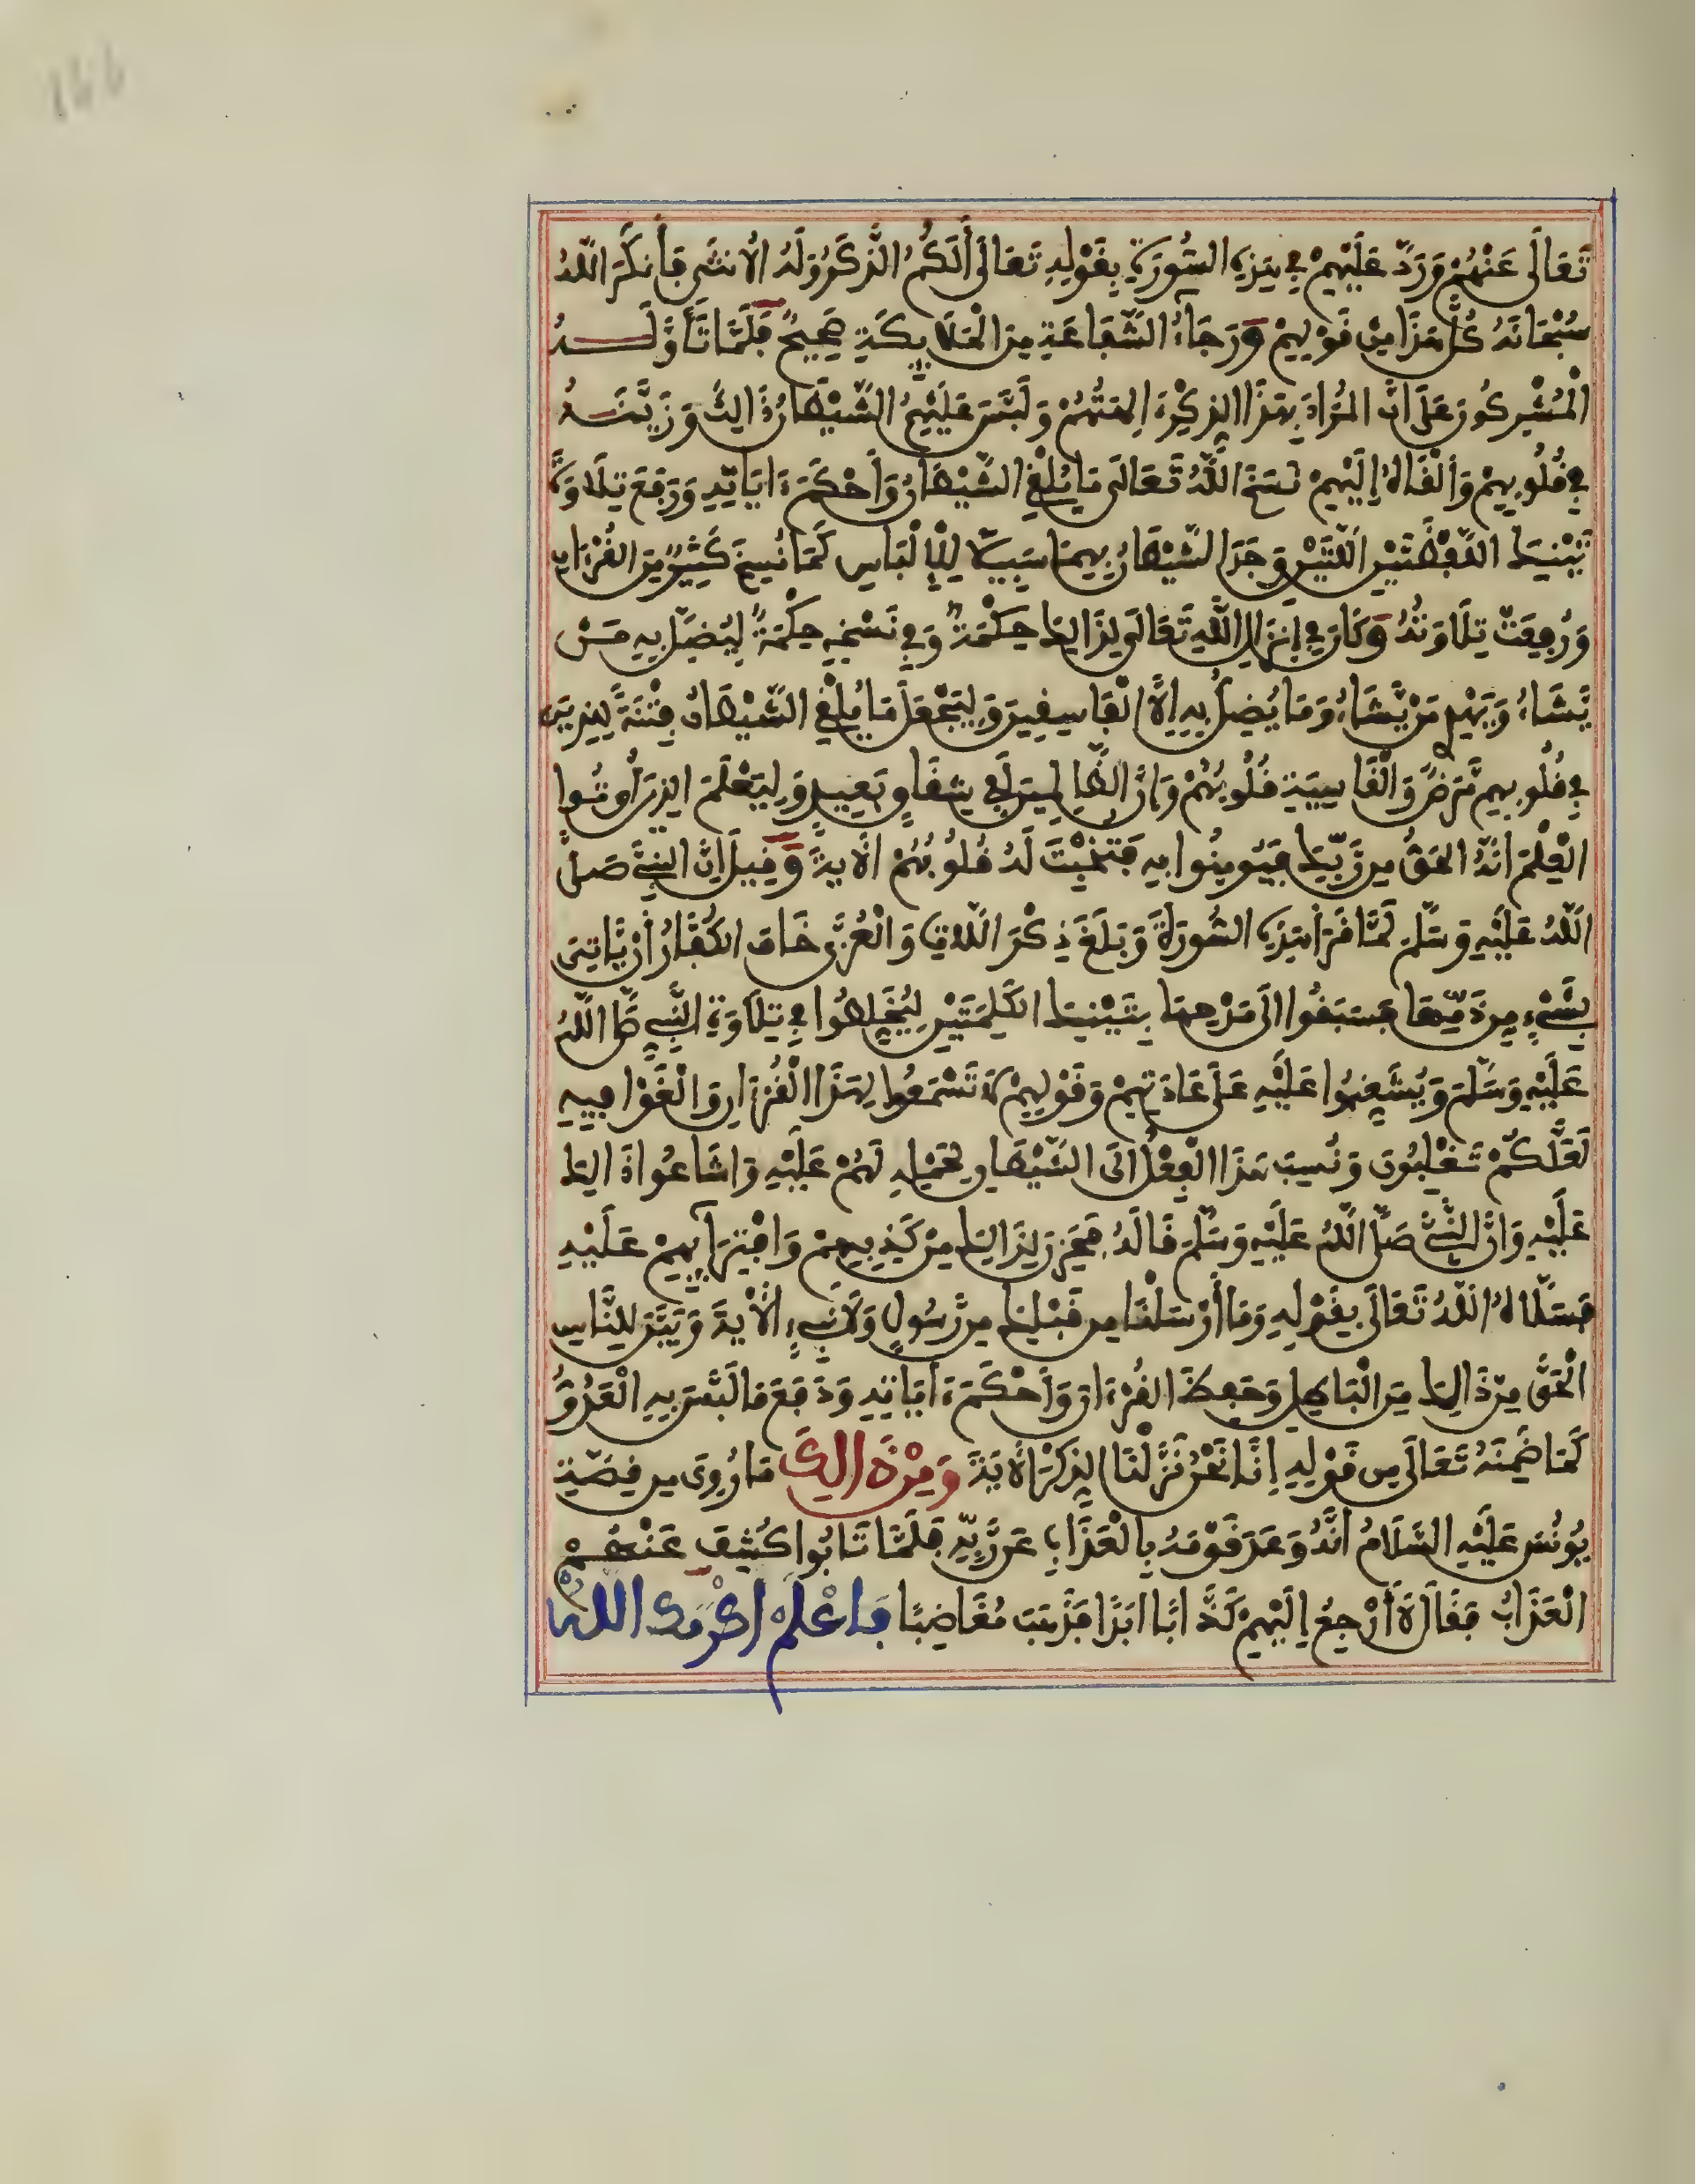 تَعَالَى عَنْهُمْ وَرَدَّ عَلَيْهِمْ فِي هَذِهِ السُّورَةِ بِقَوْلِهِ تَعَالَى أَلَكُمُ الذَّكَرُ وَلَهُ الْأُنثَى فَأَنكَرَ اللَّهُ
سُبْحَانَهُ كُلَّ هَذَا مِنْ قَوْلِهِمْ وَرَجَاءُ الشَّفَاعَةِ مِنَ الْمَلَائِكَةِ صَحِيحٌ فَلَمَّا تَأَوَّلَهُ
الْمُشْرِكُونَ عَلَى أَنَّ الْمُرَادَ بِهَذَا الذِّكْرِ ءَالِهَتُهُمْ وَلَبَّسَ عَلَيْهِمُ الشَّيْطَانُ ذَالِكَ وَزَيَّنَهُ
فِي قُلُوبِهِمْ وَأَلْقَاهُ إِلَيْهِمْ نَسَخَ اللَّهُ تَعَالَى مَا يُلْقِي الشَّيْطَانُ وَأَحْكَمَ ءَايَاتِهِ وَرَفَعَ تِلَاوَةَ
تَيْنِكَ اللَّفْظَتَيْنِ اللَّتَيْنِ وَجَدَ الشَّيْطَانُ بِهِمَا سَبِيلًا لِلْإِلْبَاسِ كَمَا نُسِخَ كَثِيرٌ مِنَ الْقُرْءَانِ
وَرُفِعَتْ تِلَاوَتُهُ وَكَانَ فِي إِنْزَالِ اللَّهِ تَعَالَى لِذَالِكَ حِكْمَةٌ وَفِي نَسْخِهِ حِكْمَةٌ لِيُضِلَّ بِهِ مَنْ
يَّشَاءُ وَيَهْدِي مَنْ يَّشَاءُ وَمَا يُضِلُّ بِهِ إِلَّا الْفَاسِقِينَ وَلِيَجْعَلَ مَا يُلْقِي الشَّيْطَانُ فِتْنَةً لِلَّذِينَ
فِي قُلُوبِهِم مَّرَضٌ وَالْقَاسِيَةِ قُلُوبُهُمْ وَإِنَّ الظَّالِمِينَ لَفِي شِقَاقٍ بَعِيدٍ وَلِيَعْلَمَ الَّذِينَ أُوتُوا
الْعِلْمَ أَنَّهُ الْحَقُّ مِن رَّبِّكَ فَيُومِنُوا بِهِ فَتُخْبِتَ لَهُ قُلُوبُهُمْ الْآيَةَ وَقِيلَ إِنَّ النَّبِيَّ صَلَّى
اللَّهُ عَلَيْهِ وَسَلَّمَ لَمَّا قَرَأَ هَذِهِ السُّورَةَ وَبَلَغَ ذِكْرَ اللَّاتِ وَالْعُزَّى خَافَ الْكُفَّارُ أَنْ يَّاتِيَ
بِشَيْءٍ مِنْ ذَمِّهَا فَسَبَقُوا إِلَى مَدْحِهَا بِتَيْنِكَ الْكَلِمَتَيْنِ لِيُخَلِّطُوا فِي تِلَاوَةِ النَّبِيِّ صَلَّى اللَّهُ
عَلَيْهِ وَسَلَّمَ وَيُشَغِّبُوا عَلَيْهِ عَلَى عَادَتِهِمْ وَقَوْلِهِمْ لَا تَسْمَعُوا لِهَذَا الْقُرْءَانِ وَالْغَوْا فِيهِ
لَعَلَّكُمْ تَغْلِبُونَ وَنُسِبَ هَذَا الْفِعْلُ إِلَى الشَّيْطَانِ لِحَمْلِهِ لَهُمْ عَلَيْهِ وَأَشَاعُوا ذَالِكَ
عَلَيْهِ وَأَنَّ النَّبِيَّ صَلَّى اللَّهُ عَلَيْهِ وَسَلَّمَ قَالَهُ فَحَزِنَ لِذَالِكَ مِنْ كَذِبِهِمْ وَافْتِرَآئِهِمْ عَلَيْهِ
فَسَلَّاهُ اللَّهُ تَعَالَى بِقَوْلِهِ وَمَا أَرْسَلْنَا مِن قَبْلِكَ مِن رَّسُولٍ وَلَا نَبِيءٍ الْآيَةَ وَبَيَّنَ لِلنَّاسِ
الْحَقَّ مِنْ ذَالِكَ مِنَ الْبَاطِلِ وَحَفِظَ الْقُرْءَانَ وَأَحْكَمَ ءَايَاتِهِ وَدَفَعَ مَا لَبَّسَ بِهِ الْعَدُوُّ
كَمَا ضَمِنَهُ تَعَالَى مِن قَوْلِهِ إِنَّا نَحْنُ نَزَّلْنَا الذِّكْرَ الْآيَةَ وَمِنْ ذَالِكَ مَا رُوِيَ مِن قِصَّةِ
يُونُسَ عَلَيْهِ السَّلَامُ أَنَّهُ وَعَدَ قَوْمَهُ بِالْعَذَابِ عَن رَّبِّهِ فَلَمَّا تَابُوا كُشِفَ عَنْهُمُ
الْعَذَابُ فَقَالَ لَا أَرْجِعُ إِلَيْهِمْ كَذَّابًا أَبَدًا فَذَهَبَ مُغَاضِبًا فَاعْلَمْ أَكْرَمَكَ اللَّهُ